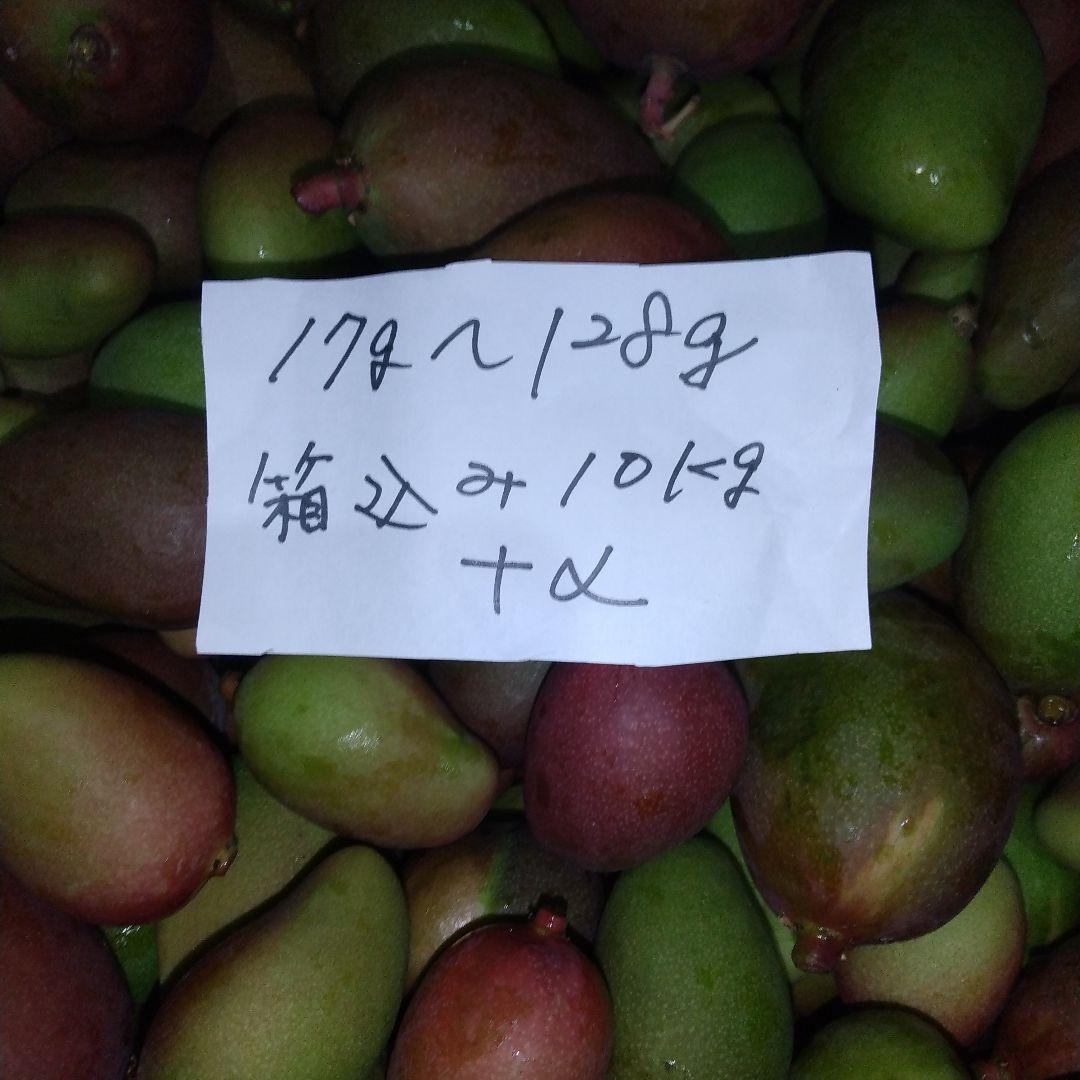 17g～128g
箱込み10Kg
+α